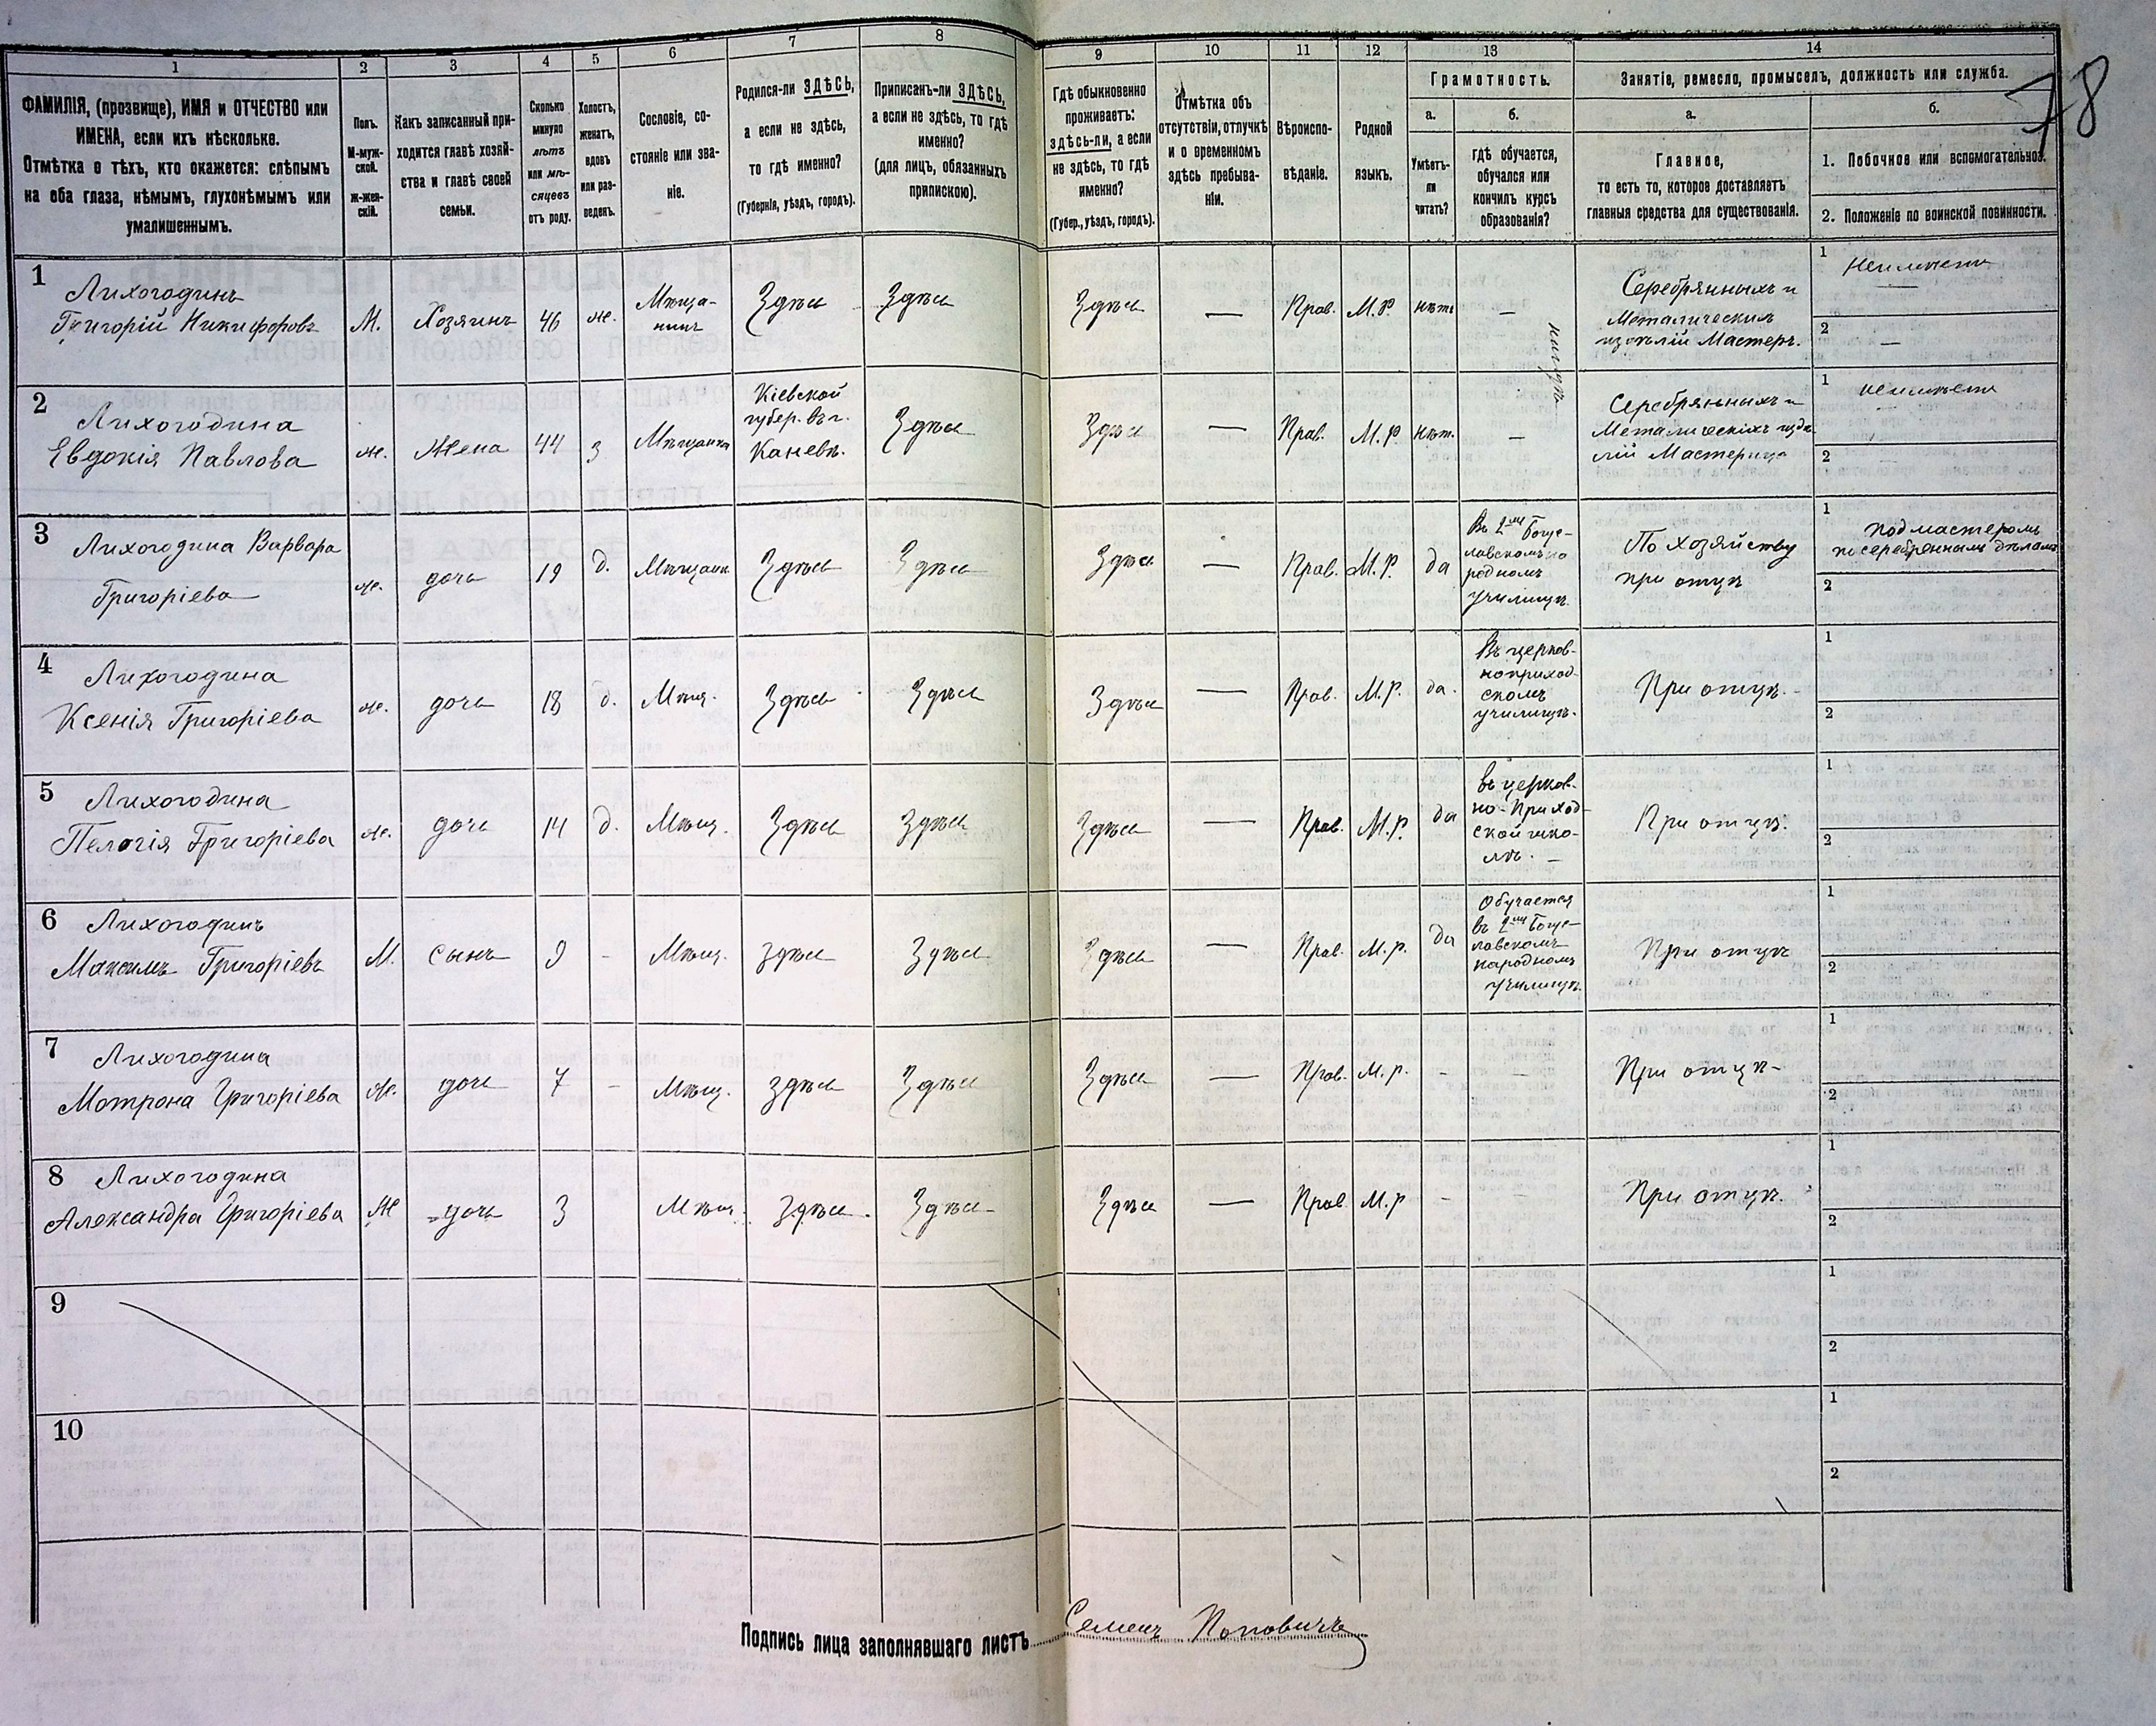 78
1 2 3 4 5 6 7 8 9 10 11 12 13 14
ФАМИЛІЯ, (прозвище), ИМЯ и ОТЧЕСТВО или
ИМЕНА, если ихъ нѣсколько.
Отмѣтка о тѣхъ, кто окажется: слѣпымъ
на оба глаза, нѣмымъ, глухонѣмымъ или
умалишеннымъ.
Полъ.
М-муж-
ской.
ж-жен-
скій.
Какъ записанный при-
ходится главѣ хозяй-
ства и главѣ своей
семьи.
Сколько
минуло
лѣтъ
или мѣ-
сяцевъ
отъ роду.
Холостъ,
женатъ,
вдовъ
или раз-
веденъ.
Сословіе, со-
стояніе или зва-
ніе.
Родился-ли ЗДѢСЬ,
а если не здѣсь,
то гдѣ именно?
(Губернія, уѣздъ, городъ).
Приписанъ-ли ЗДѢСЬ,
а если не здѣсь, то гдѣ
именно?
(для лицъ, обязанныхъ
припискою).
Гдѣ обыкновенно
проживаетъ:
здѣсь-ли, а если
не здѣсь, то гдѣ
именно?
(Губер., уѣздъ, городъ).
Отмѣтка объ
отсутствіи, отлучкѣ
и о временномъ
здѣсь пребыва-
ніи.
Вѣроиспо-
вѣданіе.
Родной
языкъ.
Грамотность.
а.
Умѣетъ-
ли
читать?
б.
гдѣ обучается,
обучался или
кончилъ курсъ
образованія?
Занятіе, ремесло, промыселъ, должность или служба.
а.
Главное,
то есть то, которое доставляетъ
главныя средства для существованія.
б.
1. Побочное или вспомогательное.
2. Положеніе по воинской повинности.
1
Лихогодинъ
Григорій Никифоровъ
М.
Хозяинъ
46
ж.
Мѣща-
нинъ
Здѣсь
Здѣсь
Здѣсь
—
Прав.
М.Р
нѣтъ
—
Серебрянныхъ и
Металическихъ
издѣлій Мастеръ.
1 неимѣетъ
2 —
2
Лихогодина
Евдокія Павлова
ж.
Жена
44
з
Мѣщанка
Кіевской
губер. въ г.
Каневѣ.
Здѣсь
Здѣсь
—
Прав.
М.Р
нѣт.
—
Серебрянныхъ и
Металическіхъ издѣ
лій Мастерица
1 неимѣетъ
2
3
Лихогодина Варвара
Григоріева
ж.
дочь
19
д.
Мѣщанк
Здѣсь
Здѣсь
Здѣсь
—
Прав.
М.Р.
да
Въ 2мъ Богу-
славскомъ на
родномъ
училищѣ.
По хозяйству
при отцѣ
1 подмастеромъ
по серебреннымъ дѣламъ
2
4
Лихогодина
Ксенія Григоріева
ж.
дочь
18
д.
Мѣщ.
Здѣсь
Здѣсь
Здѣсь
—
Прав.
М.Р.
да.
Въ церков-
ноприход-
скомъ
училищѣ.
При отцѣ.
1
2
5
Лихогодина
Пелагія Григоріева
ж.
дочь
14
д.
Мѣщ.
Здѣсь
Здѣсь
Здѣсь
—
Прав.
М.Р.
да
въ церков-
но-Приход-
ской шко-
лѣ. —
При отцѣ.
1
2
6
Лихогодинъ
Максимъ Григоріевъ
М.
сынъ
9
-
Мѣщ.
здѣсь
Здѣсь
Здѣсь
—
Прав.
М.Р.
да
Обучается
въ 2мъ Богу-
славскомъ
народномъ
училищѣ.
При отцѣ
1
2
7
Лихогодина
Мотрона Григоріева
Ж.
дочь
7
-
Мѣщ.
здѣсь
Здѣсь
Здѣсь
—
Прав.
М.р.
-
-
При отцѣ-
1
2
8
Лихогодина
Александра Григоріева
Ж
дочь
3
Мѣщ.
здѣсь.
Здѣсь
Здѣсь
—
Прав.
М.р
-
-
При отцѣ.
1
2
9
1
2
10
1
2
Подпись лица заполнявшаго листъ Семенъ Поповичъ